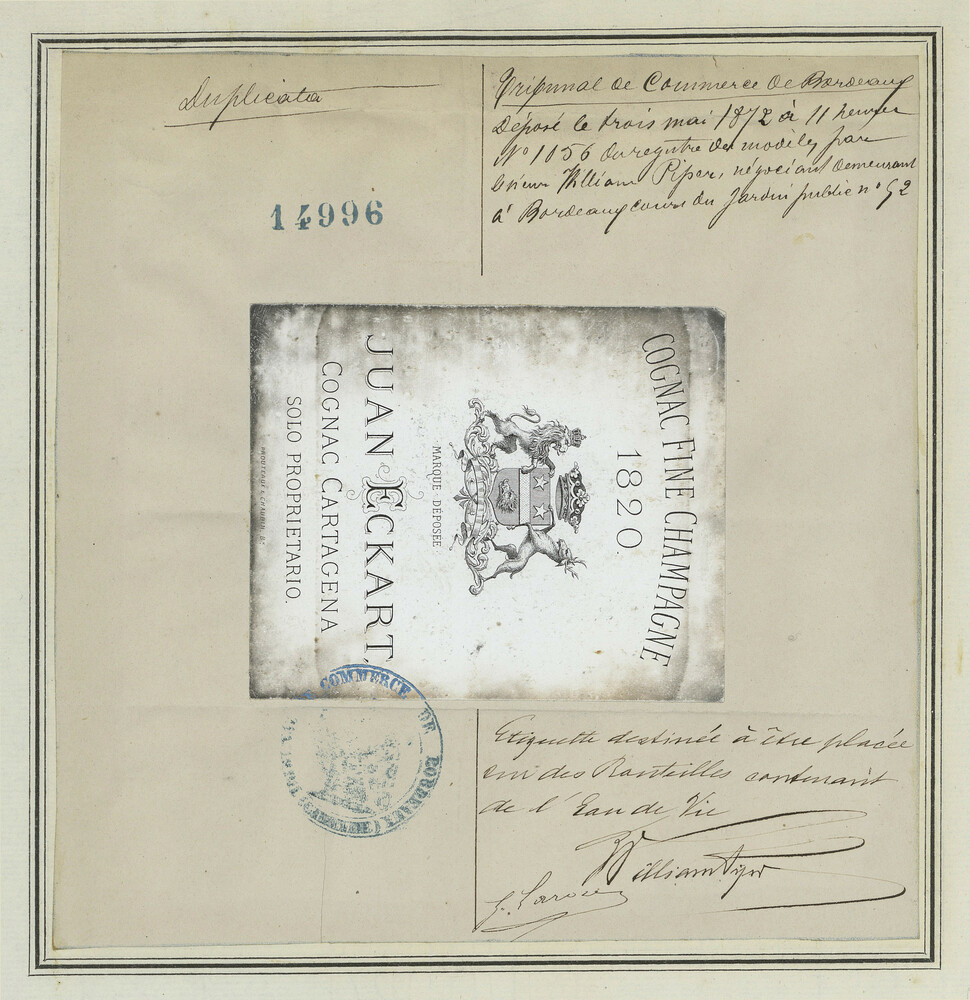 Duplicata
14996
Tribunal de Commerce de Bordeaux
Déposé le trois mai 1872 à 11 heures
N° 1056 du registre des modèles par
le sieur William Piper, négociant demeurant
à Bordeaux cours du Jardin public n° 52
COGNAC FINE CHAMPAGNE
1820.
MARQUE DEPOSÉE
JUAN ECKART,
COGNAC CARTAGENA
SOLO PROPRIETARIO.
DE COMMERCE DE BORDEAUX
Etiquette destinée à être placée
sur des Bouteilles contenant
de l'Eau de Vie
William Piper